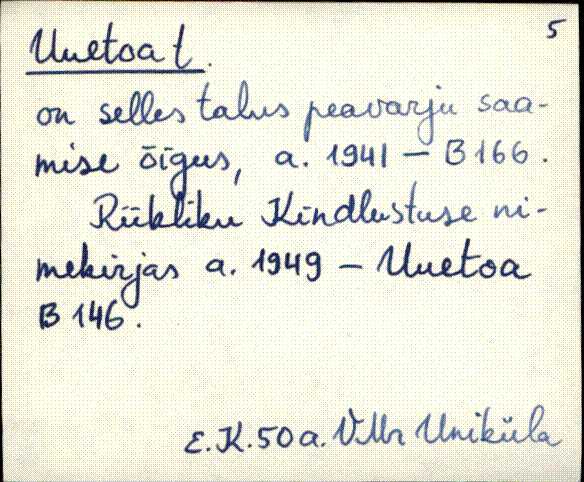 5
Uuetoa t.
on selles talus peavarju saa-
mise õigus, a. 1941 – B 166.
Riikliku Kindlustuse ni-
mekirjas a. 1949 – Uuetoa
B 146.
E.K. 50 a. VMr Uniküla